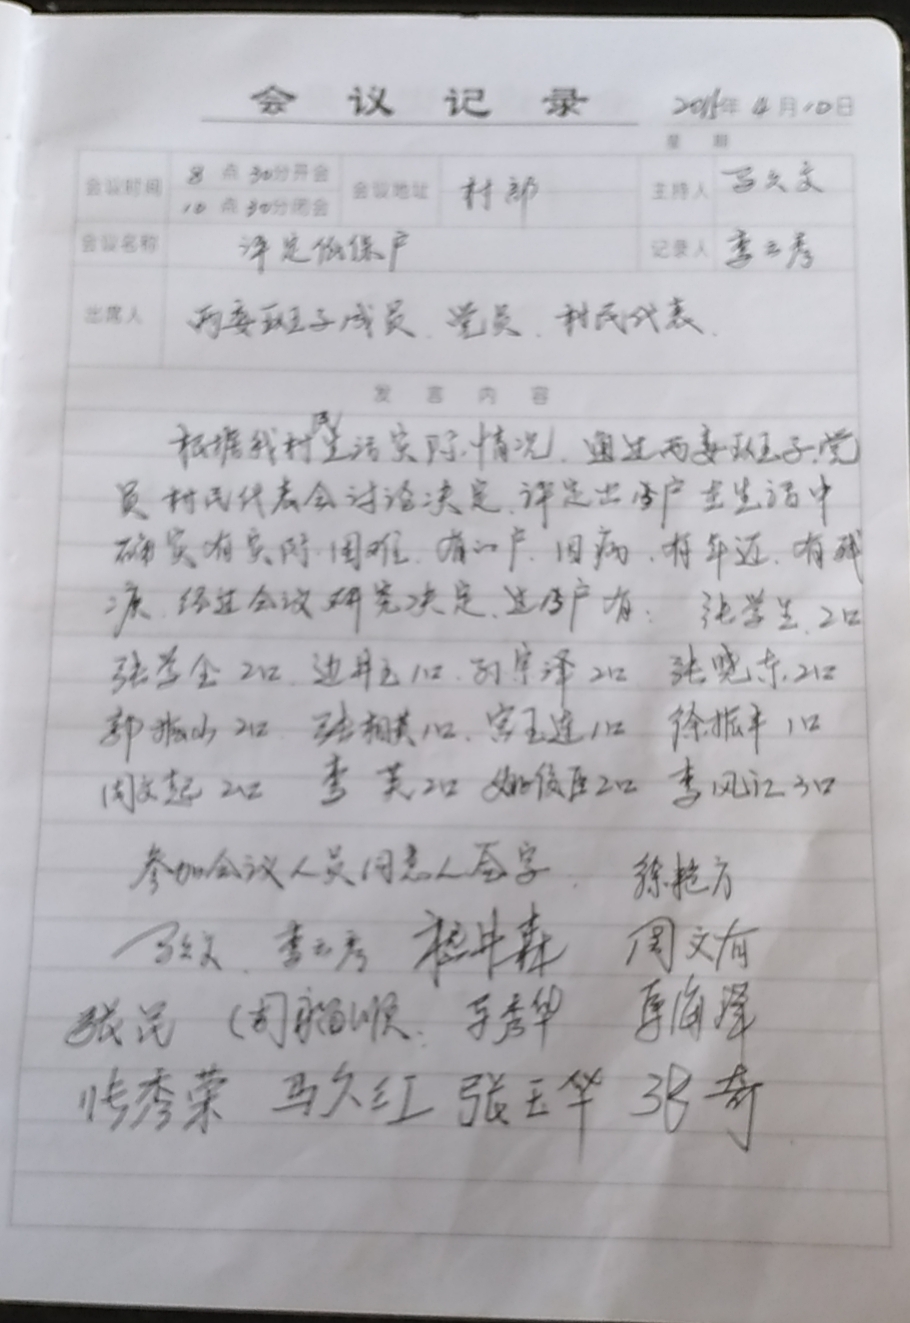 会议记录 年4月10日
星期
会议时间 8点30分开会 会议地址 村部 主持人 马久文
10点30分闭会
会议名称 评定低保户 记录人 李云秀
出席人 两委班子成员、党员、村民代表、
发言内容
根据我村民生活实际情况、通过两委班子、党
员村民代表会讨论决定、评定出 户在生活中
确实有实际困难、有的户、因病、有年迈、有残
疾、经过会议研究决定、这 户有：张学生、2口
张学全2口、边井玉1口、孙宗泽2口 张晓东、2口
郭振山2口、张相英1口、宫玉莲1口 徐振平1口
周文起2口 李英2口 姚俊臣2口 李凤江3口
参加会议人员同意人签字、徐艳方
马久文、李云秀 程井森 周文有
张民 周福顺、李秀华 李海泽
张秀荣 马久红 张玉华 张奇